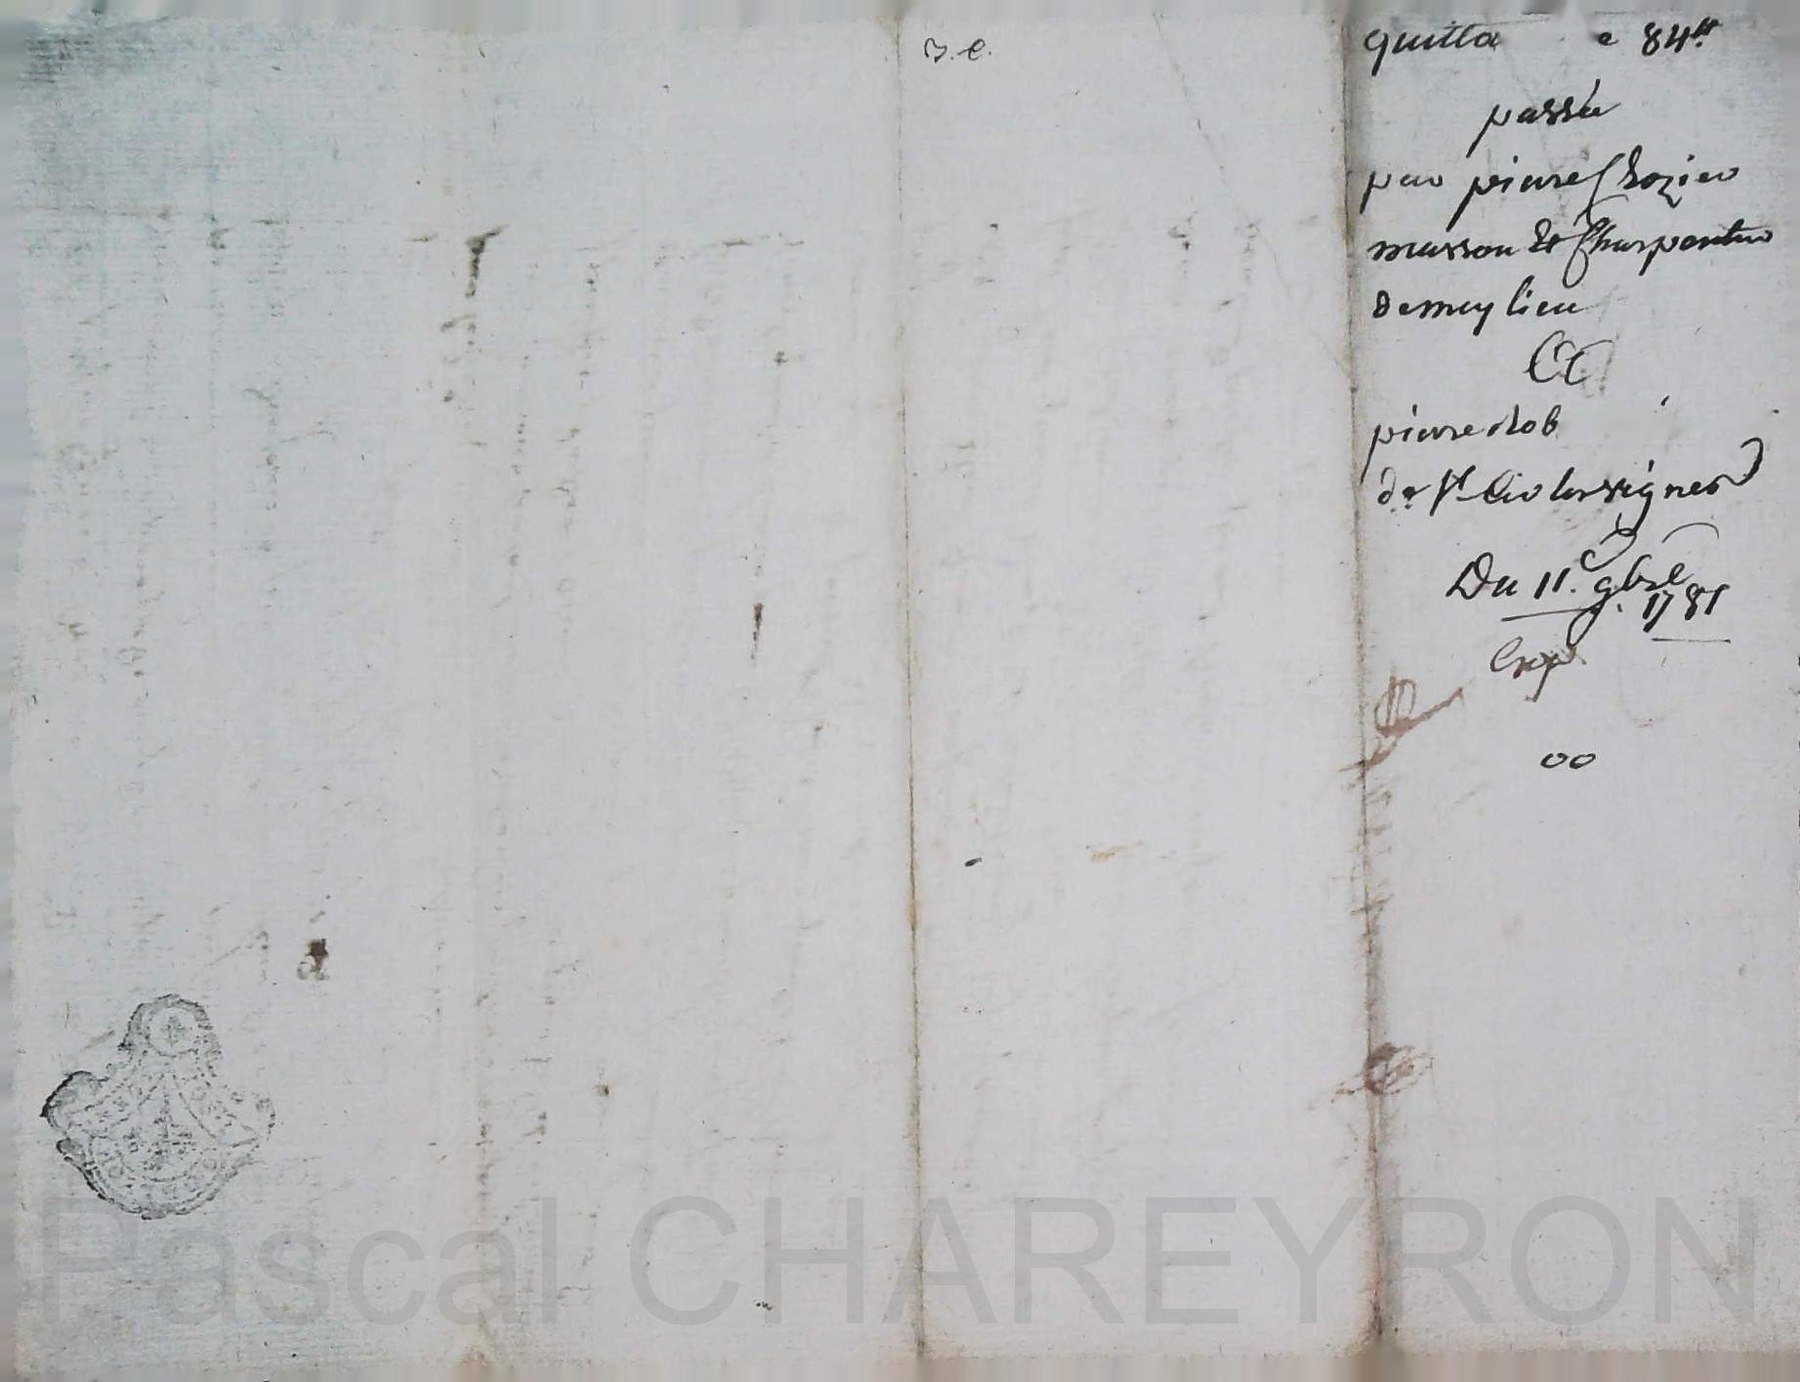 B.C.
quitta e 84#
passée
par pierre Chozier
masson Et Charpentier
de meylieu
Et
pierre Rob
de St Cir les vignes
Du 11.e 9bre 1781
Exp
00
Pascal CHAREYRON